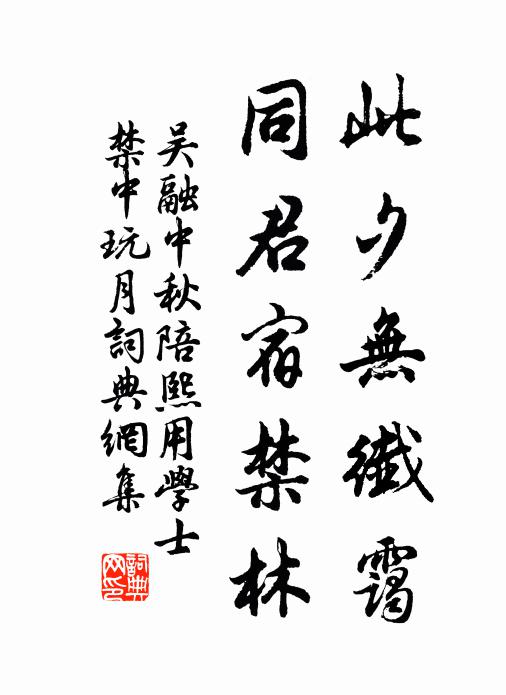 此夕無纖靄
同君宿禁林
吴融中秋陪熙用學士
禁中玩月詞典網集
詞典
网印